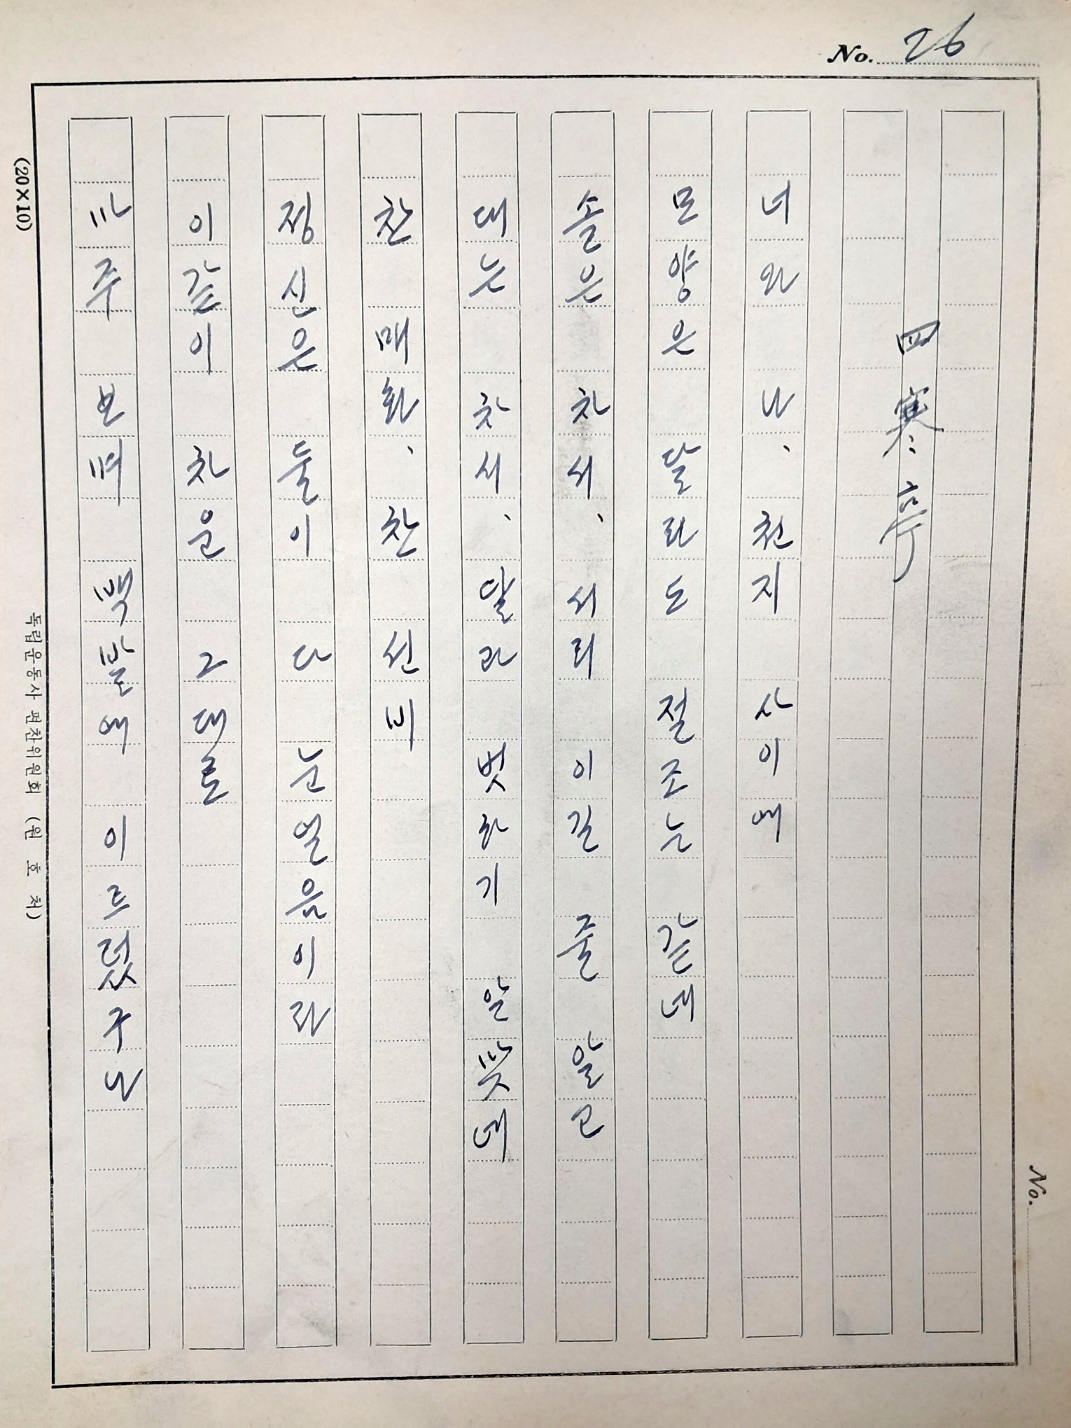 No. 26
四寒亭
너와 나、천지 사이에
모양은 달라도 절조는 같네
솔은 차서、서리 이길 줄 알고
대는 차서、달과 벗하기 알맞네
찬 매화、찬 선비
정신은 둘이 다 눈얼음이라
이같이 차운 그대로
마주 보며 백발에 이르렀구나
(20×10)
독립운동사 편찬위원회 (원 호 처)
No.